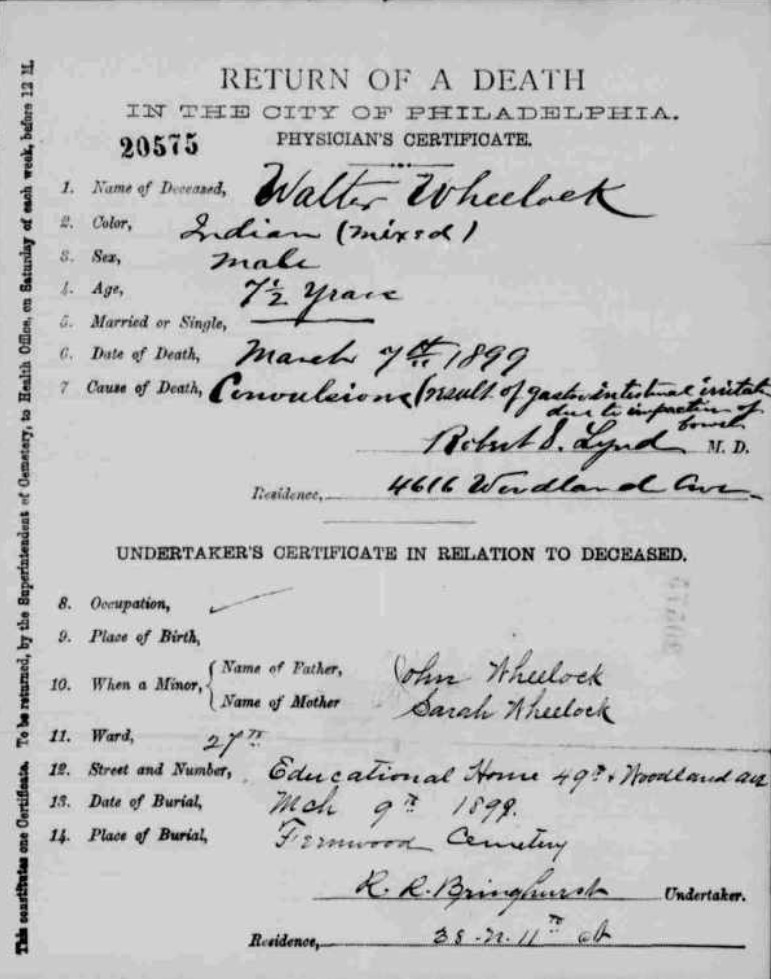 RETURN OF A DEATH
IN THE CITY OF PHILADELPHIA.
20575 PHYSICIAN'S CERTIFICATE.
1. Name of Deceased, Walter Wheelock
2. Color, Indian (mixed)
3. Sex, male
4. Age, 7½ years
5. Married or Single,
6. Date of Death, March 7th 1899
7 Cause of Death, Convulsions (result of gastro intestinal irritat
due to impaction of
bowels
Robert S. Lynd M. D.
Residence, 4616 Woodland Ave
UNDERTAKER'S CERTIFICATE IN RELATION TO DECEASED.
8. Occupation,
9. Place of Birth,
10. When a Minor, { Name of Father, John Wheelock
Name of Mother Sarah Wheelock
11. Ward, 27th
12. Street and Number, Educational Home 49th & Woodland av
13. Date of Burial, Mch 9th 1899.
14. Place of Burial, Fernwood Cemetery
R. R. Bringhurst Undertaker.
Residence, 38 N. 11th st
This constitutes one Certificate. To be returned, by the Superintendent of Cemetery, to Health Office, on Saturday of each week, before 12 M.
20575